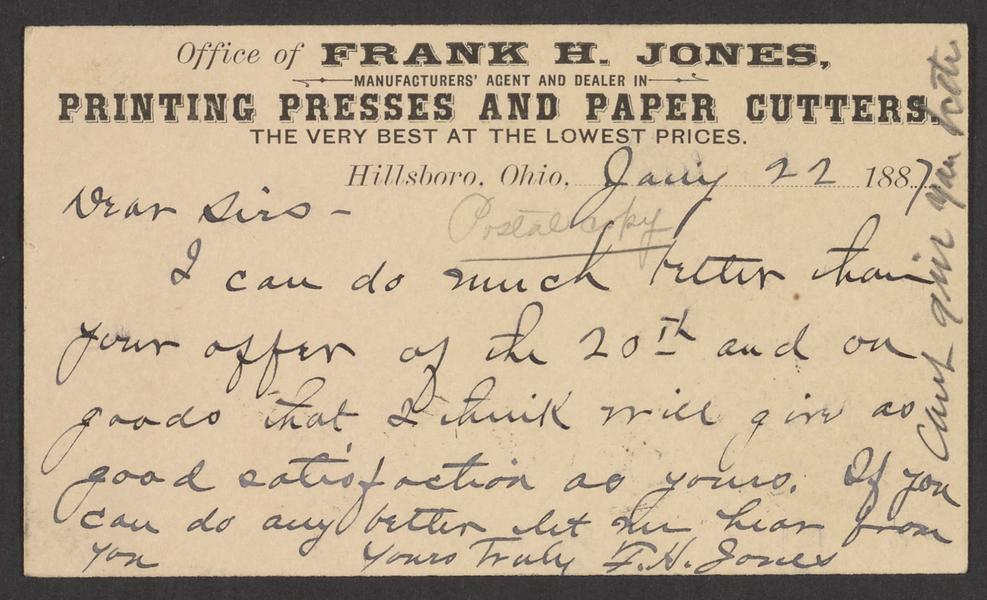 Office of FRANK H. JONES,
MANUFACTURERS' AGENT AND DEALER IN
PRINTING PRESSES AND PAPER CUTTERS.
THE VERY BEST AT THE LOWEST PRICES.
Hillsboro, Ohio, Jany 22 1887
Dear Sirs -
Postal copy
I can do much better than
your offer of the 20th and on
goods that I think will give as
good satisfaction as yours. If you
can do any better let me hear from
you Yours Truly F.H. Jones
Cant give you better